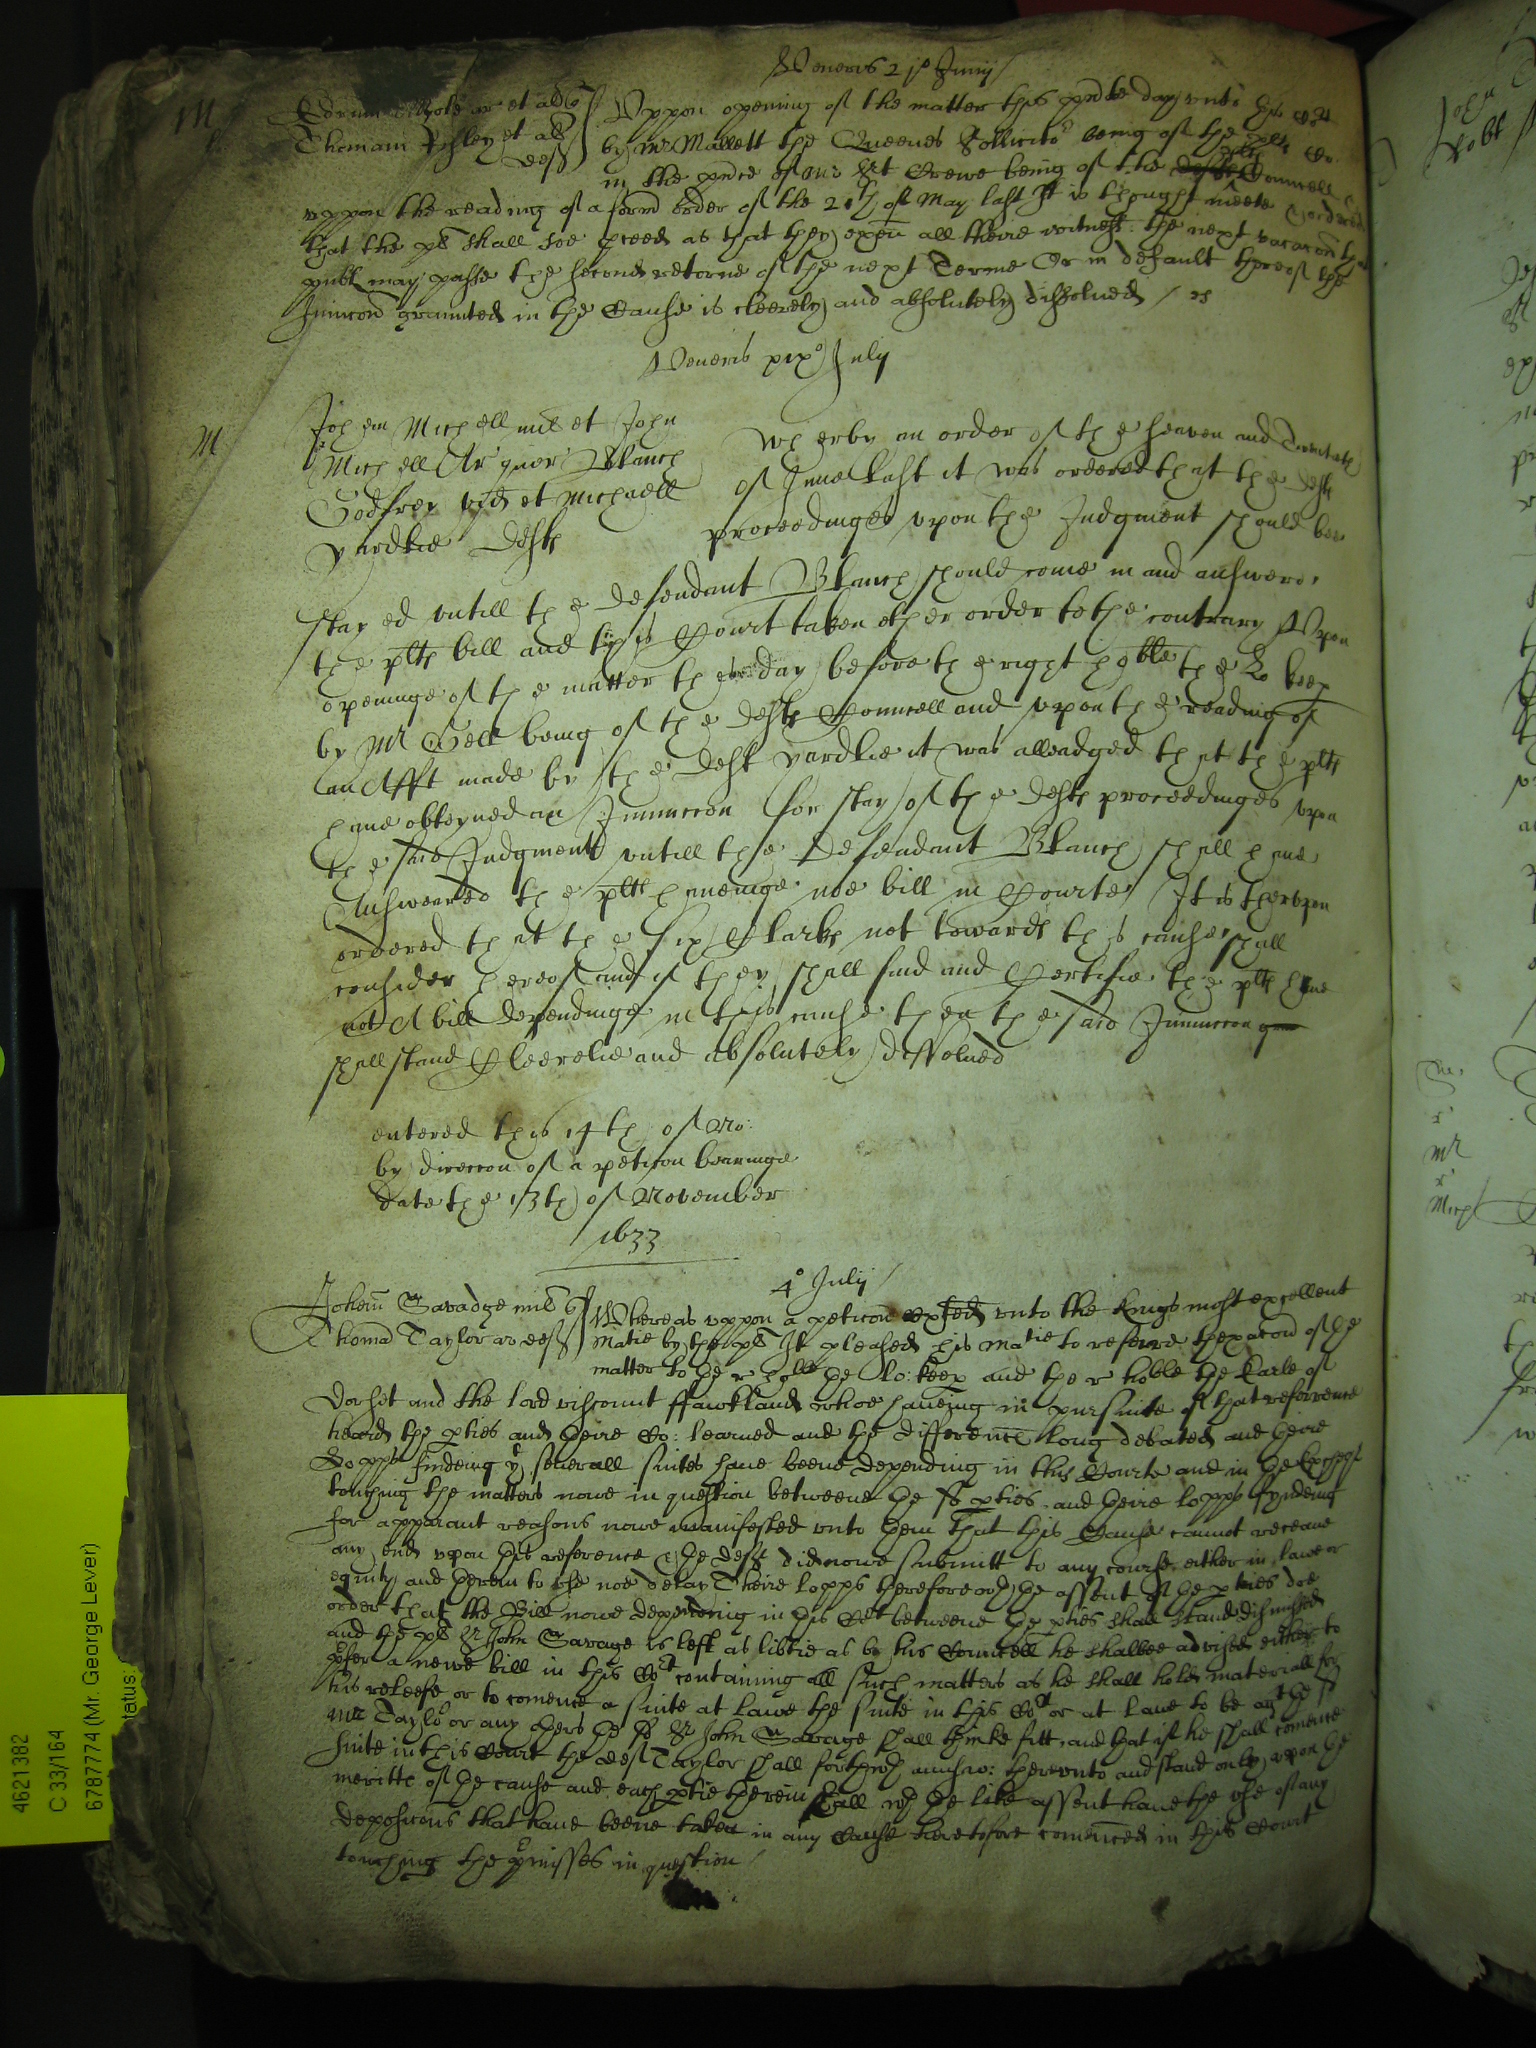 Veneris 21o Junij
Vppon opening of the matter this pnte day vnto
Thomam Ashley et al
deft
by Mr Mallett the Queenes Sollicito being of the
in the pnce of Crewe being of the Councell
vppon the reading of a form order of the 20th of May last It is thought meete
that the pl shall soe pceed as that they exm all theire witness the next vacacon
publ may passe the second retorne of the next Terme Or in default thereof the
Iniunccon graunted in the Cause is cleerely and absolutely dissolued
Veneris xixo July
M
Johem Michell mil et John
Michell Ar quer Blanch
Godfrey vid et Michaell
yardlie Defts
Wherby an order of the seaven and Twentith
of June last it was ordered that the defts
proceedinges vpon the Judgment should bee
stayed vntill the defendant Blanch should come in and answere
the plts bill and this Court taken other order to the contrary Vpon
openinge of the matter the day before the right hoble the Lo keep
by Mr Gell being of the defts Councell and vpon the reading of
an Afft made by the deft yardlie it was alleadged that the plts
haue obteyned an Iniunccon for stay of the defts proceedinges vpon
the said Judgment vntill the Defendant Blanch shall haue
Answeared the plts haueinge noe bill in Courte It is thervpon
ordered that the six Clarks not towards this cause shall
consider hereof and if they shall find and Certifie the plts haue
not A bill dependinge in this cause then the said Iniunccon
shall stand Cleerelie and absolutely dissolued
entered this 14th of No:
by direccon of a peticon bearinge
date the 13th of November
1633
4o Julij
Johem Savadge mil
Thoma Taylor ar deft
Whereas vppon a peticon vnto the Kings most excellent
Matie by the pl It pleased his Matie to referre thexacon of the
matter to the r hoble the Lo: keep and the r hoble the Earle of
Dorset and the lord viscount ffawkland whoe haueing in pursuite of that reference
heard the pties and theire Co: learned and the difference long debated and theire
Lopps findeing yt seuerall suites haue beene depending in this Courte and in the
touching the matters nowe in question betweene the sd pties and theire lopps fyndeing
for apparant reasons nowe manifested vnto them that this Cause cannot receaue
any end vpon this reference the deft did nowe submitt to any course either in lawe or
equity and therein to vse noe delay Theire lopps therefore wth the assent of the pties doe
order that the Bill nowe depending in this Cort betweene the pties shall stand dismissed
and the pl Sr John Savage is left at libtie as by his Councell he shalbee advised either to
pfer a newe bill in this Cort containing all such matters as he shall hold materiall for
his releefe or to comence a suite at lawe the suite in this Cort or at lawe to be agt the sd
Mr Taylor or any others the sd Sr John Savage shall thinke fitt and that if he shall comence
suite in this Court the deft Taylor shall forthwth answ: therevnto and stand only vpon the
meritts of the cause and each ptie therein shall wth the like assent haue the vse of any
deposicons that haue beene taken in any Cause heretofore comenced in this Court
touching the pmisses in question
4621382
C 33/164
6787774 (Mr. George Lever)